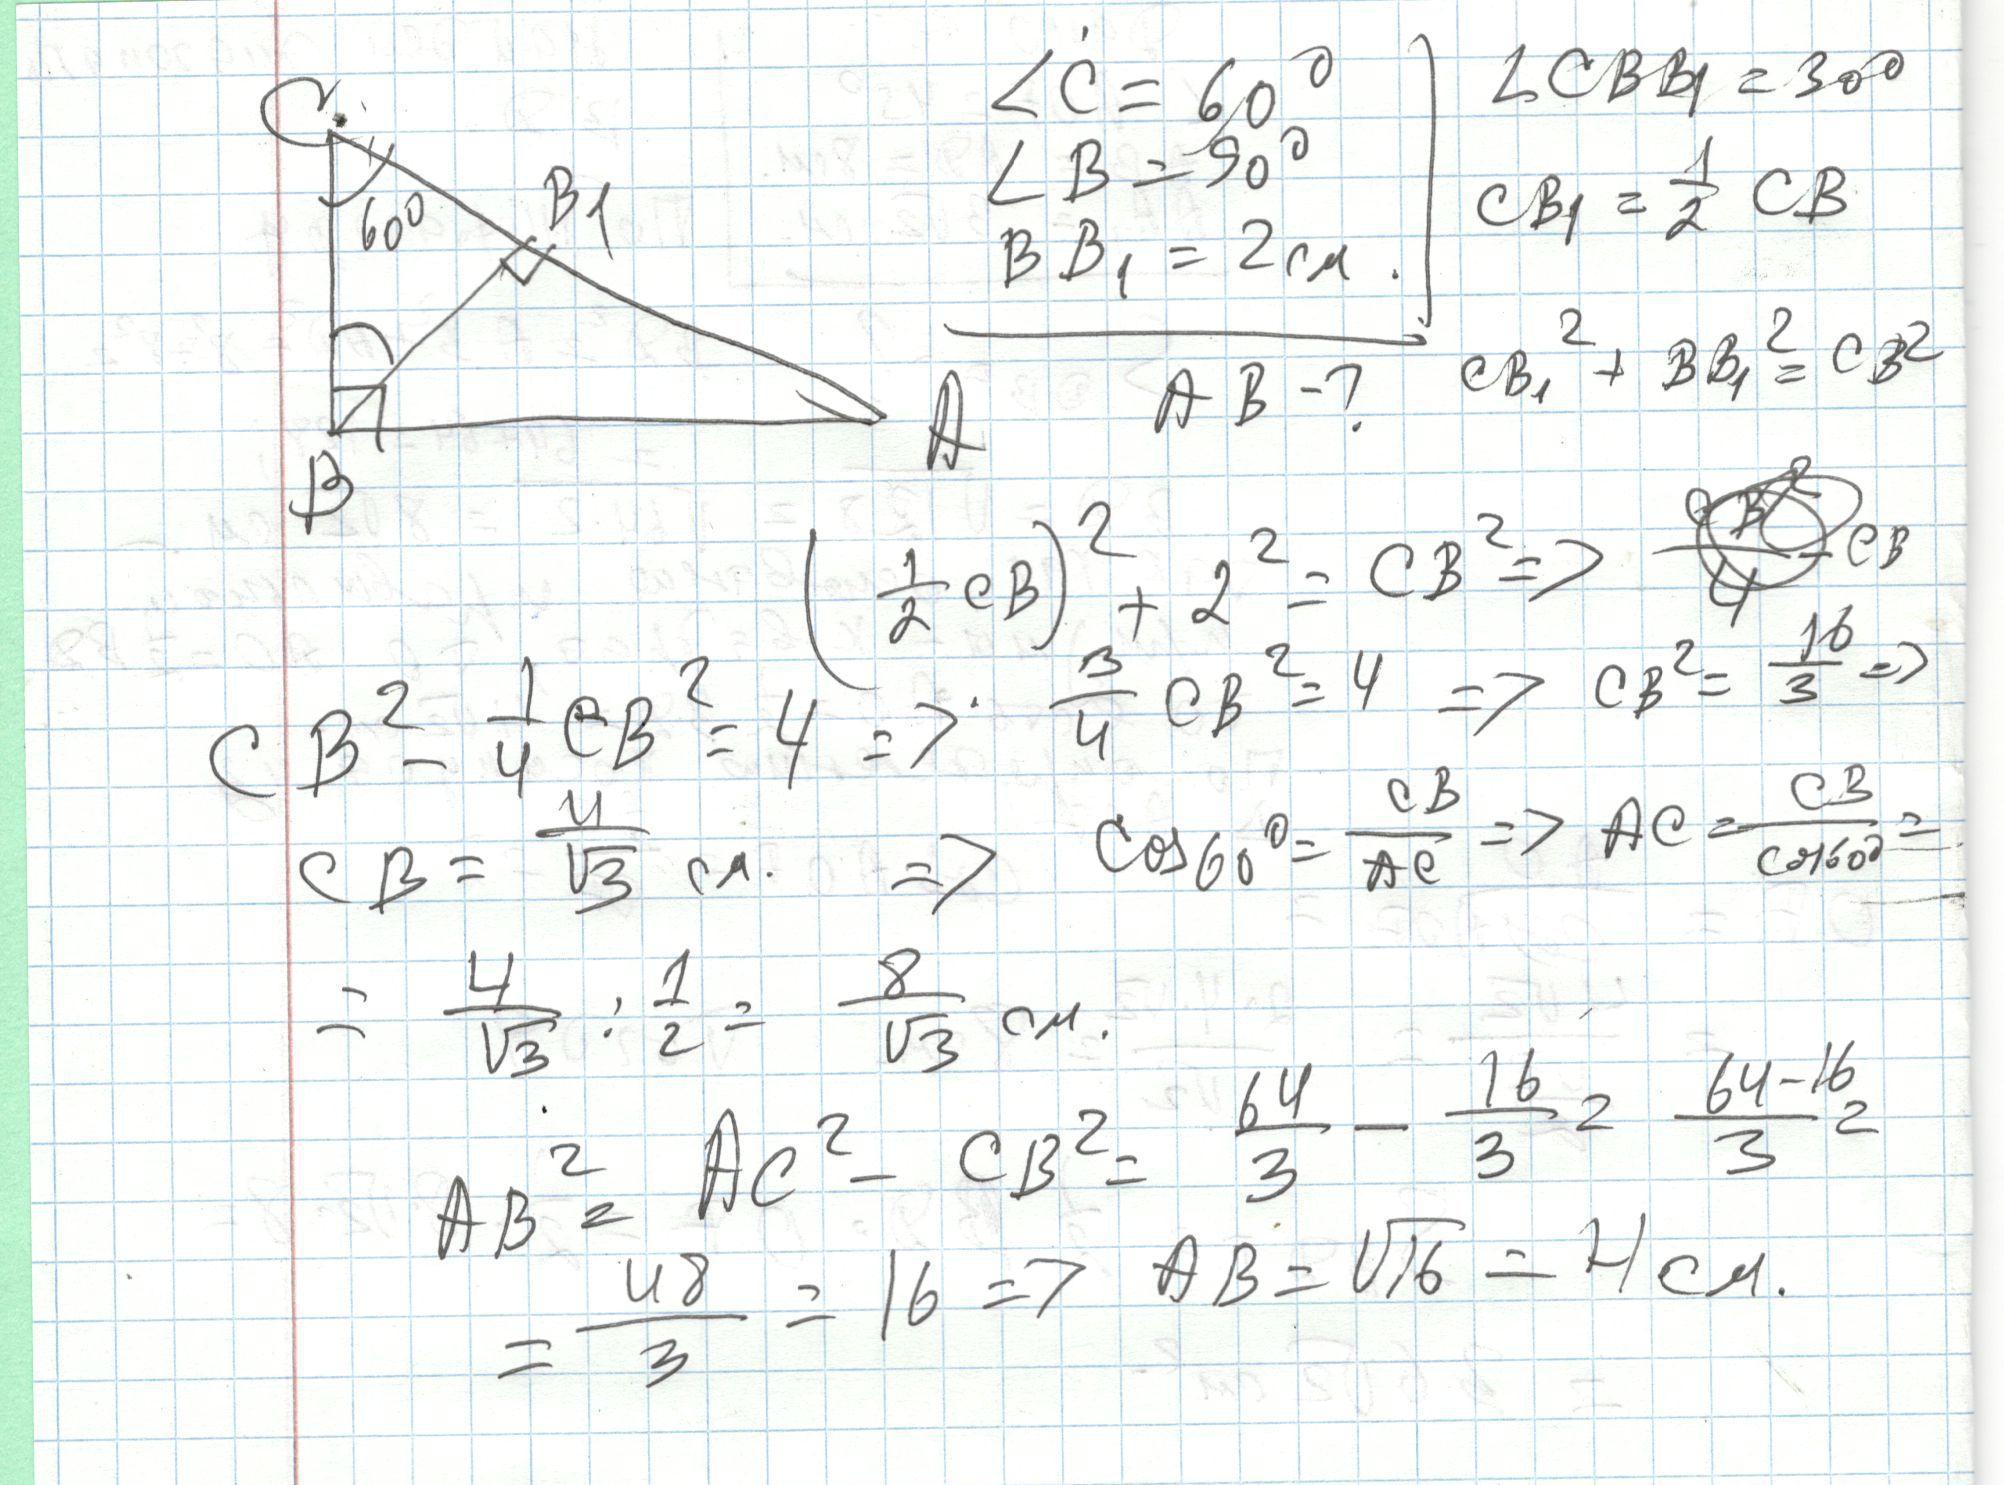 C
60°
B1
B
A
∠C = 60°
∠B = 90°
BB₁ = 2 см.
AB - ?
∠CBB₁ = 30°
CB₁ = 1/2 CB
CB₁² + BB₁² = CB²
(1/2 CB)² + 2² = CB² =>
CB² - 1/4 CB² = 4 => 3/4 CB² = 4 => CB² = 16/3 =>
CB = 4/√3 см. => cos60° = CB/AC => AC = CB/cos60° =
= 4/√3 : 1/2 = 8/√3 см.
AB² = AC² - CB² = 64/3 - 16/3 = 64-16/3 =
= 48/3 = 16 => AB = √16 = 4 см.